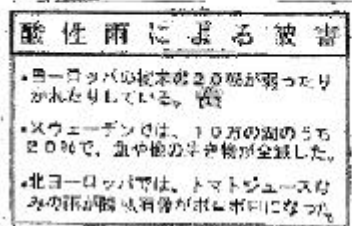 酸性雨による被害
・ヨーロッパの樹木の20%が弱ったり
かれたりしている。
・スウェーデンでは、10万の湖のうち
20%で、魚や他の生き物が全滅した。
・北ヨーロッパでは、トマトジュースな
みの雨が降り、石像がボロボロになった。